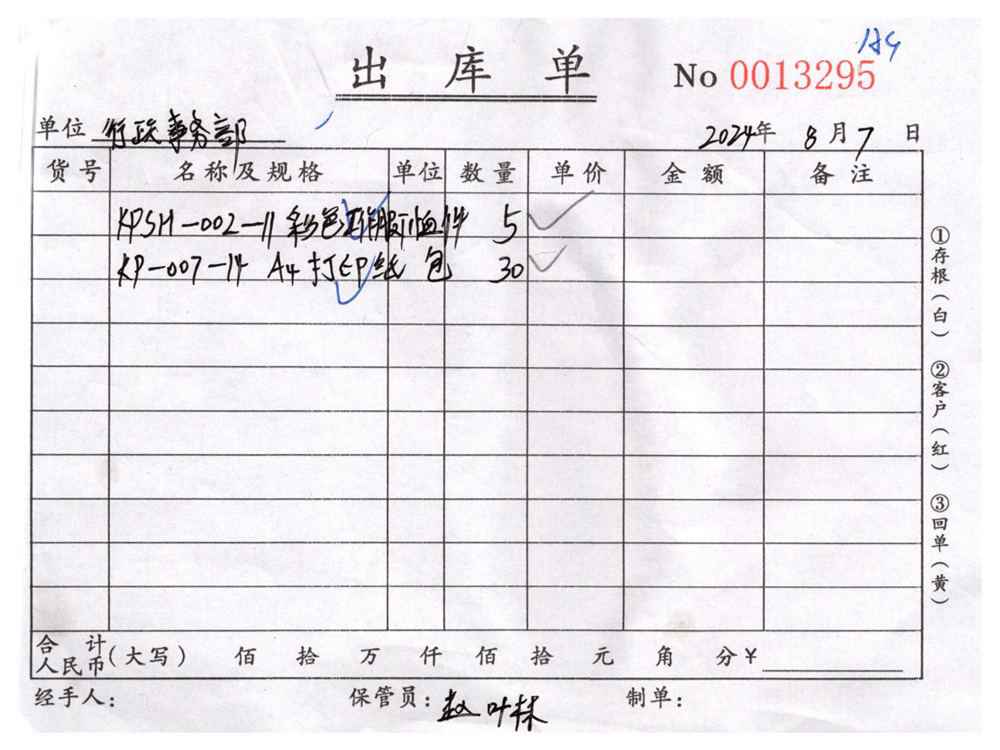 出库单
No 0013295
单位 行政事务部 2024年 8月 7日
货号 名称及规格 单位 数量 单价 金额 备注
KPSH-002-11 彩色工作服 件 5
KP-007-14 A4打印纸 包 30
合计人民币(大写) 佰 拾 万 仟 佰 拾 元 角 分¥
经手人: 保管员: 赵叶林 制单:
①存根(白)
②客户(红)
③回单(黄)